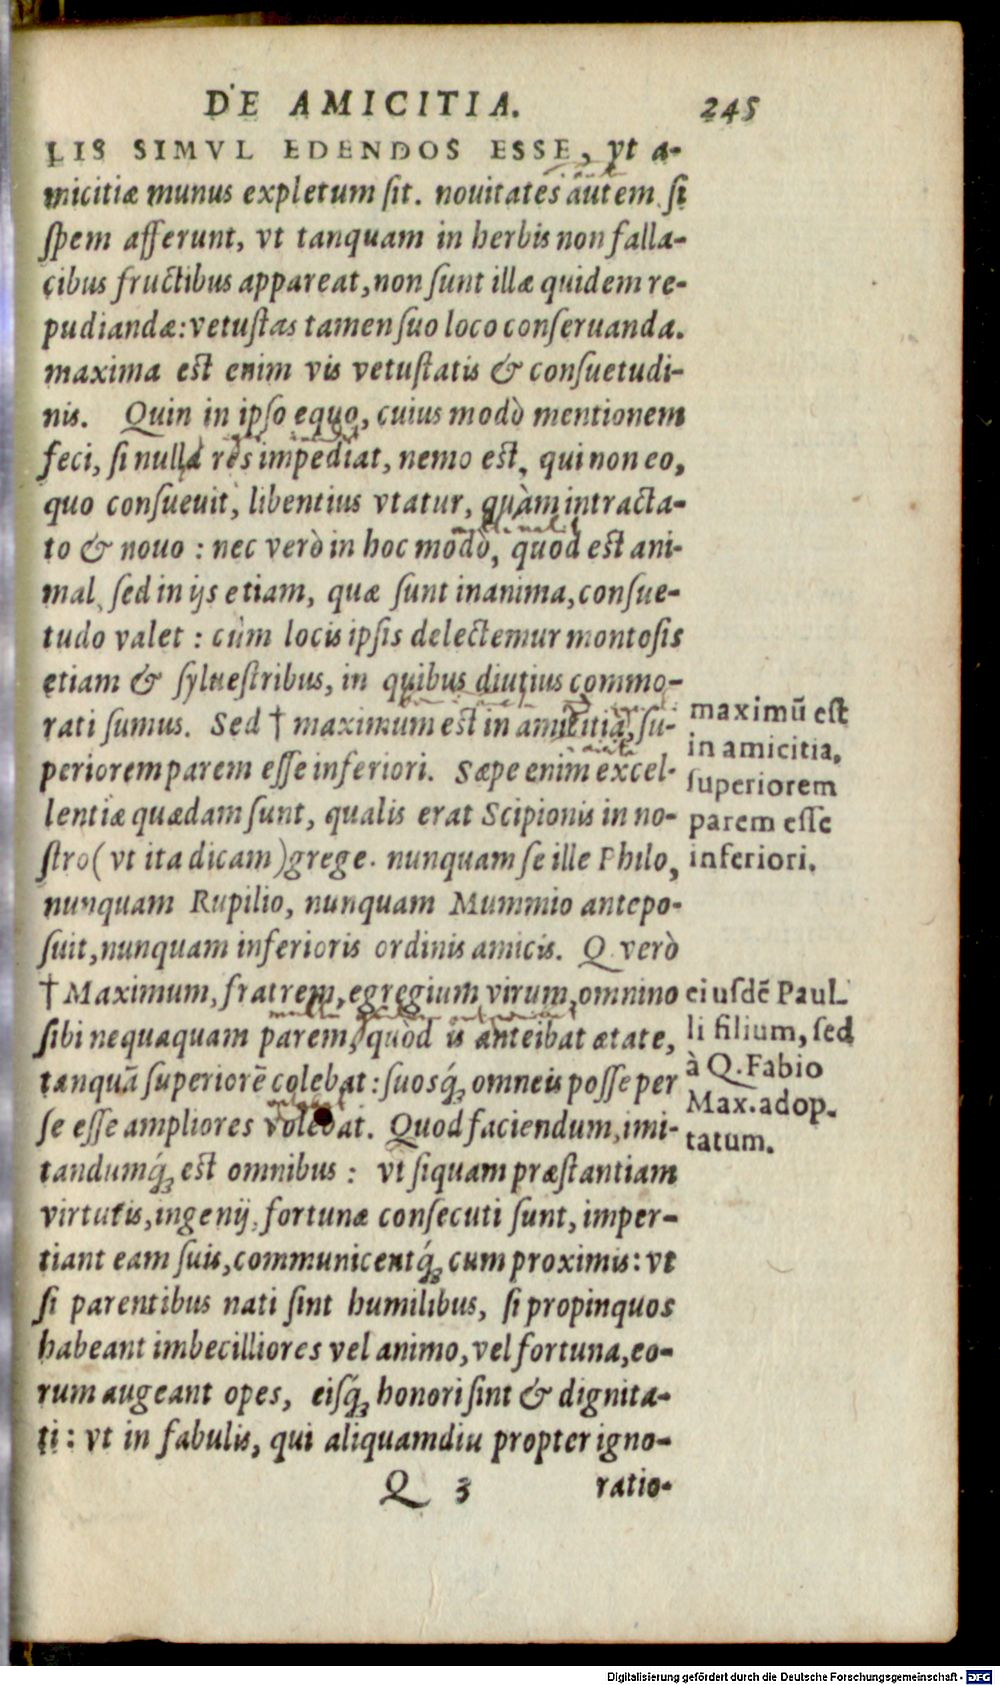 DE AMICITIA. 245
LIS SIMVL EDENDOS ESSE, vt a-
micitiæ munus expletum sit. nouitates autem si
spem afferunt, vt tanquam in herbis non falla-
cibus fructibus appareat, non sunt illæ quidem re-
pudiandæ: vetustas tamen suo loco conseruanda.
maxima est enim vis vetustatis & consuetudi-
nis. Quin in ipso equo, cuius modò mentionem
feci, si nulla res impediat, nemo est, qui non eo,
quo consueuit, libentius vtatur, quàm intracta-
to & nouo : nec verò in hoc modò, quod est ani-
mal, sed in ijs etiam, quæ sunt inanima, consue-
tudo valet : cùm locis ipsis delectemur montosis
etiam & syluestribus, in quibus diutius commo-
rati sumus. Sed † maximum est in amicitia, su-
periorem parem esse inferiori. Sæpe enim excel-
lentiæ quædam sunt, qualis erat Scipionis in no-
stro (vt ita dicam) grege. nunquam se ille Philo,
nunquam Rupilio, nunquam Mummio antepo-
suit, nunquam inferioris ordinis amicis. Q. verò
† Maximum, fratrem, egregium virum, omnino
sibi nequaquam parem, quòd is anteibat ætate,
tanquā superiorē colebat : suosq́; omneis posse per
se esse ampliores volebat. Quod faciendum, imi-
tandumq́; est omnibus : vt siquam præstantiam
virtutis, ingenij, fortunæ consecuti sunt, imper-
tiant eam suis, communicentq́; cum proximis: vt
si parentibus nati sint humilibus, si propinquos
habeant imbecilliores vel animo, vel fortuna, eo-
rum augeant opes, eisq́; honori sint & dignita-
ti : vt in fabulis, qui aliquamdiu propter igno-
Q 3 ratio-
maximū est
in amicitia,
superiorem
parem esse
inferiori.
eiusdē Paul-
li filium, sed
à Q. Fabio
Max. adop-
tatum.
Digitalisierung gefördert durch die Deutsche Forschungsgemeinschaft - DFG